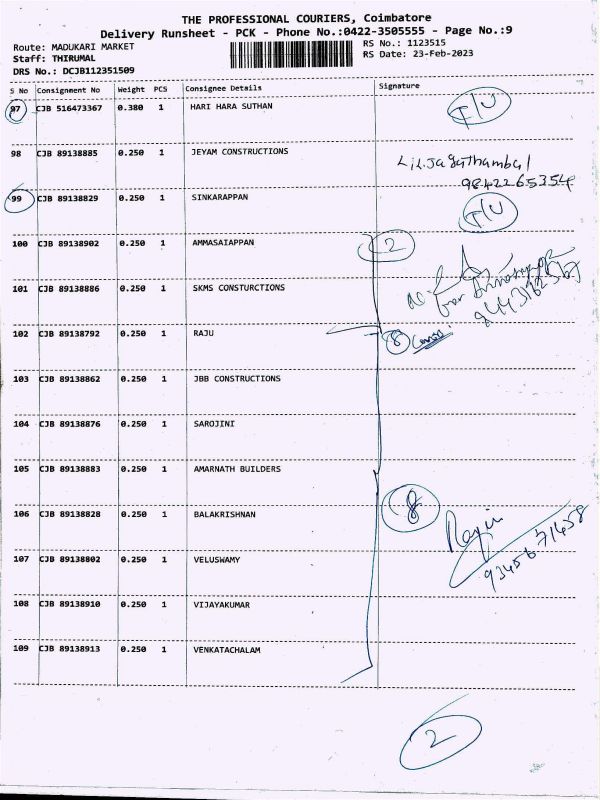 THE PROFESSIONAL COURIERS, Coimbatore
Delivery Runsheet - PCK - Phone No.:0422-3505555 - Page No.:9
Route: MADUKARI MARKET RS No.: 1123515
Staff: THIRUMAL RS Date: 23-Feb-2023
DRS No.: DCJB112351509
S No Consignment No Weight PCS Consignee Details Signature
97 CJB 516473367 0.380 1 HARI HARA SUTHAN
98 CJB 89138885 0.250 1 JEYAM CONSTRUCTIONS
9842265354
99 CJB 89138829 0.250 1 SINKARAPPAN
100 CJB 89138902 0.250 1 AMMASAIAPPAN 2
101 CJB 89138886 0.250 1 SKMS CONSTURCTIONS
102 CJB 89138792 0.250 1 RAJU 8
103 CJB 89138862 0.250 1 JBB CONSTRUCTIONS
104 CJB 89138876 0.250 1 SAROJINI
105 CJB 89138883 0.250 1 AMARNATH BUILDERS
106 CJB 89138828 0.250 1 BALAKRISHNAN 8
107 CJB 89138802 0.250 1 VELUSWAMY
108 CJB 89138910 0.250 1 VIJAYAKUMAR
109 CJB 89138913 0.250 1 VENKATACHALAM
2